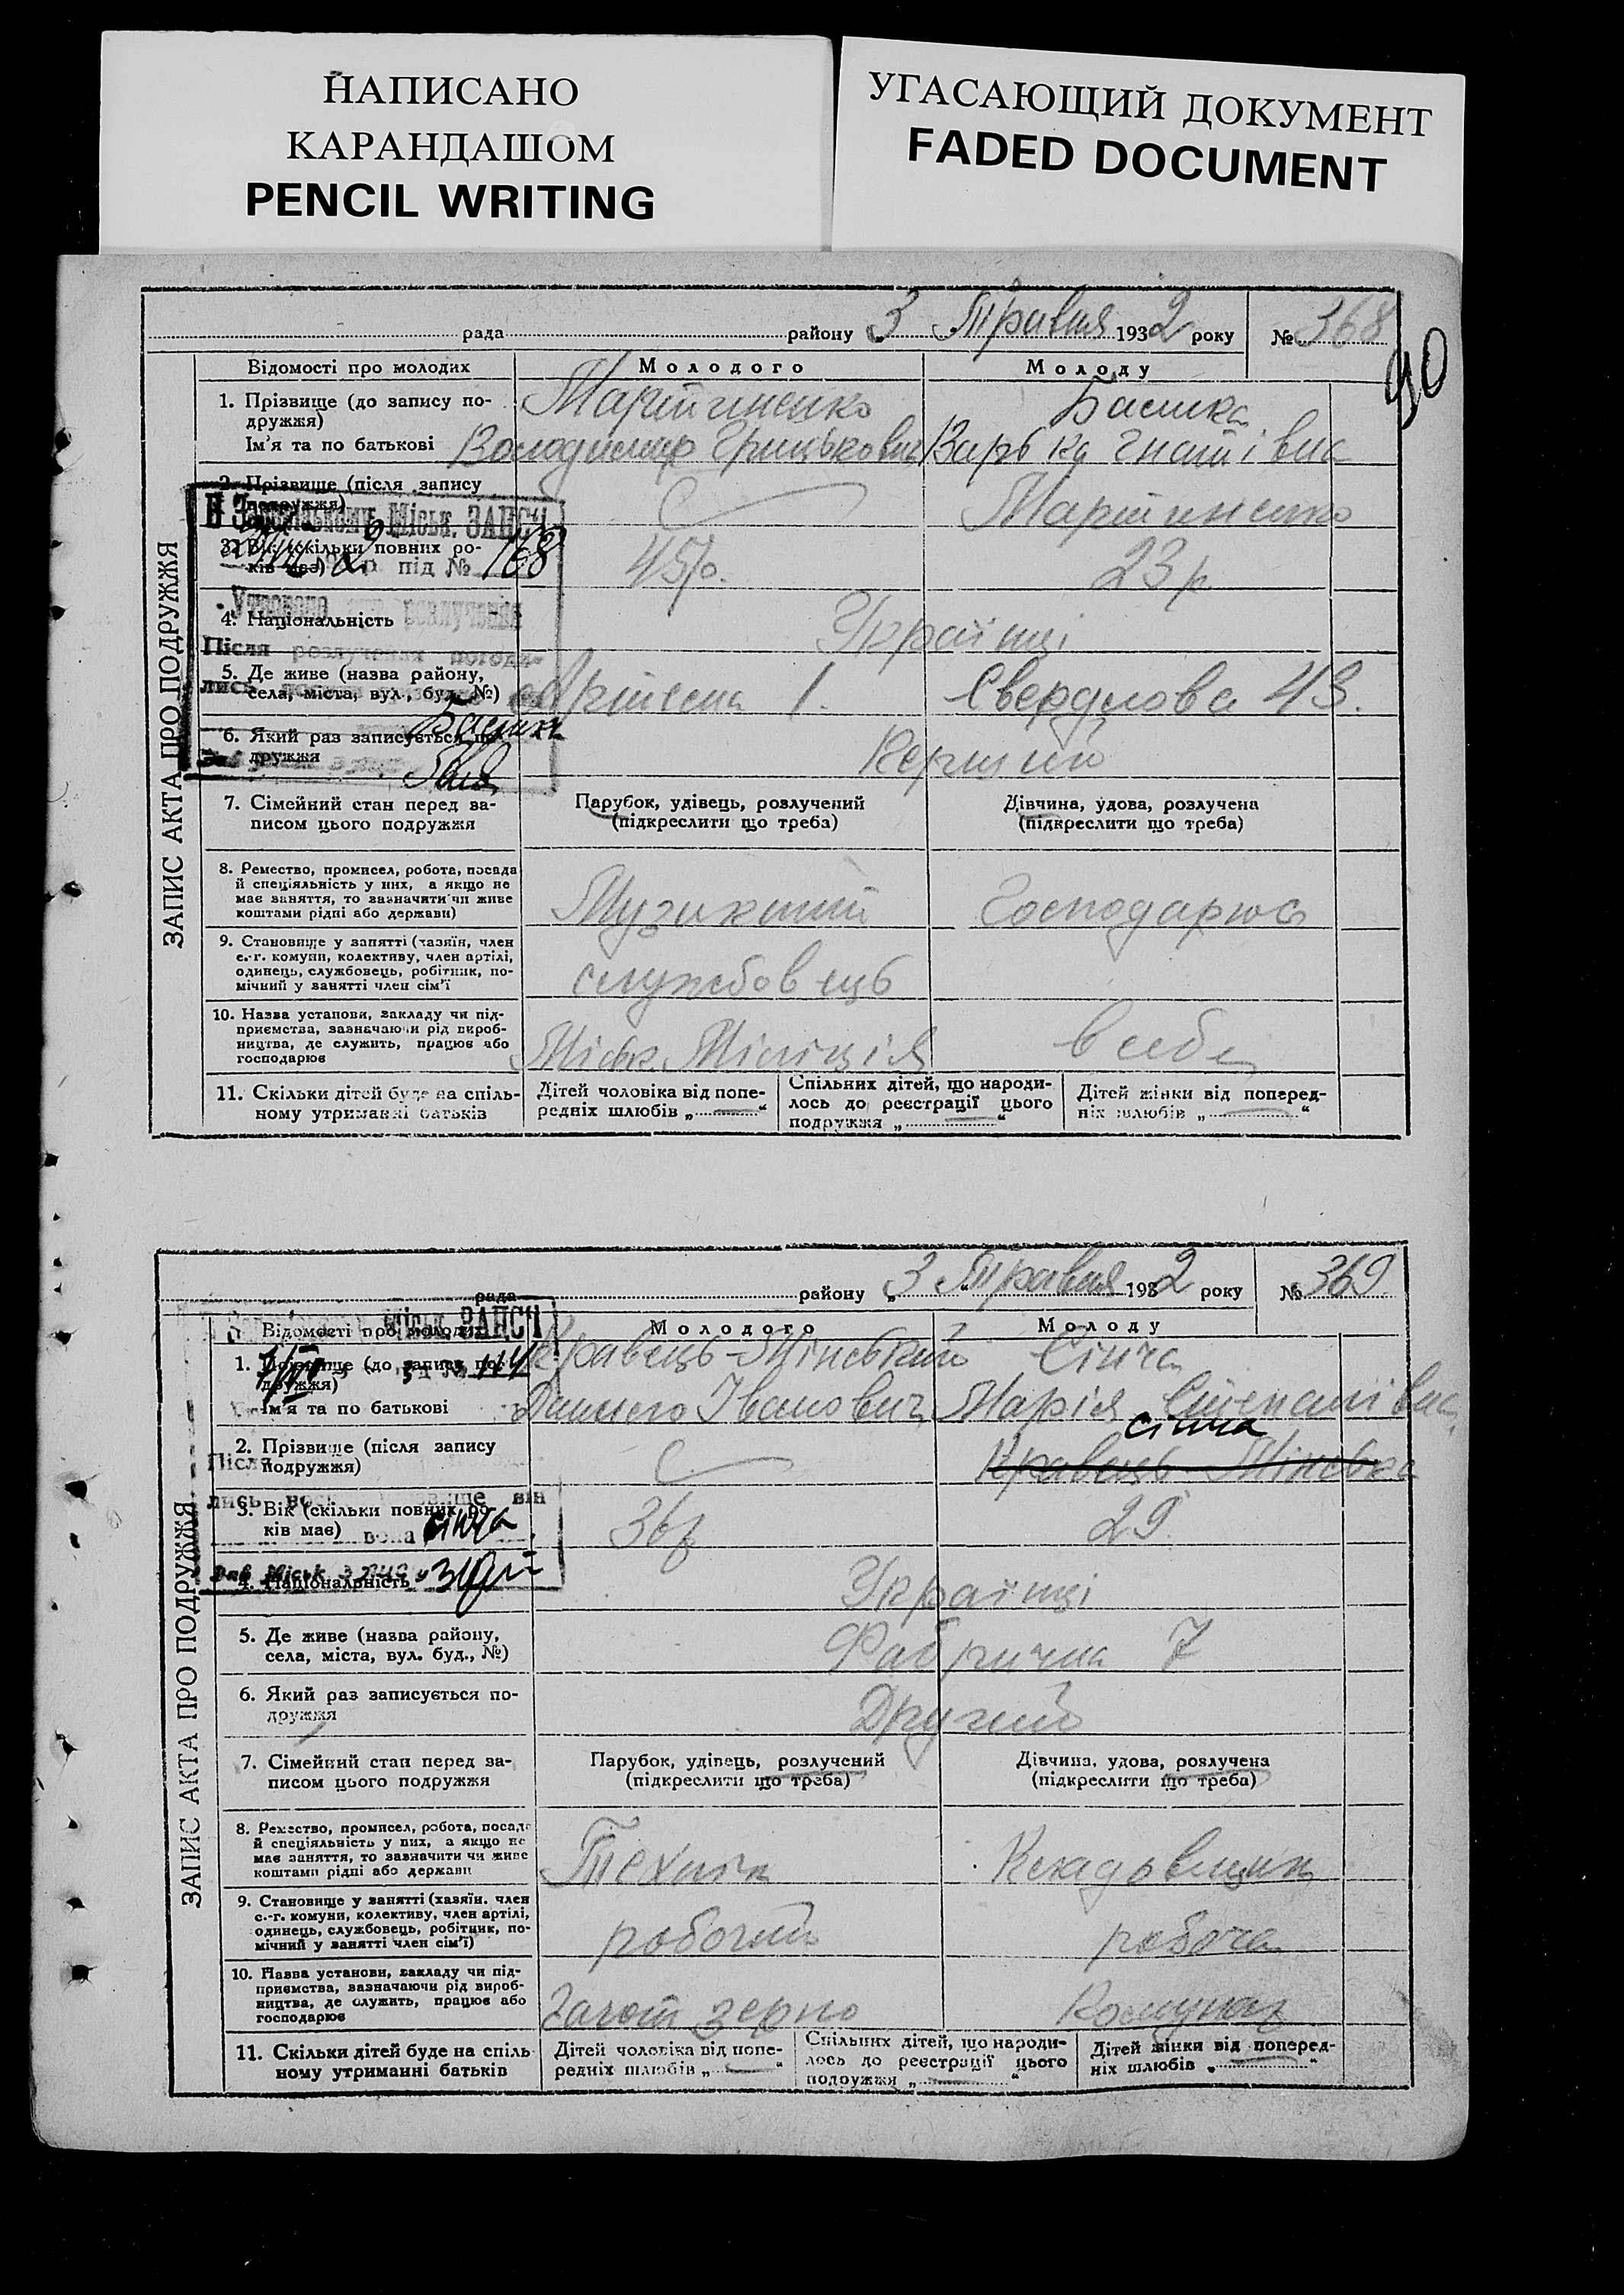 НАПИСАНО
КАРАНДАШОМ
PENCIL WRITING
УГАСАЮЩИЙ ДОКУМЕНТ
FADED DOCUMENT
рада району 3 Травня 1932 року № 368
90
ЗАПИС АКТА ПРО ПОДРУЖЖЯ
Відомості про молодих Молодого Молоду
1. Прізвище (до запису по- Мартиненко
дружжя)
Ім'я та по батькові Володимир Грицькович Варька Гнатівна
2. Прізвище (після запису Мартиненко
подружжя)
Міськ. ЗАПСИ
3. Вік (скільки повних ро- 45р. 23 р.
ків має) під № 168
4. Національність Українці
Після розлучення погоди-
5. Де живе (назва району, Артема 1. Свердлова 43.
села, міста, вул., буд., №)
6. Який раз записується по- Перший
дружжя
7. Сімейний стан перед за- Парубок, удівець, розлучений Дівчина, удова, розлучена
писом цього подружжя (підкреслити що треба) (підкреслити що треба)
8. Ремество, промисел, робота, посада
й спеціяльність у них, а якщо не
має заняття, то зазначити чи живе
коштами рідні або держави)
9. Становище у занятті (хазяїн, член службовець
с.-г. комуни, колективу, член артілі,
одинець, службовець, робітник, по-
мічний у занятті член сім'ї
10. Назва установи, закладу чи під- Міськ. Міліція
приємства, зазначаючи рід вироб-
ництва, де служить, працює або
господарює
11. Скільки дітей буде на спіль-
ному утриманні батьків
Дітей чоловіка від попе-
редніх шлюбів „ — “
Спільних дітей, що народи-
лось до реєстрації цього
подружжя „ — “
Дітей жінки від поперед-
ніх шлюбів „ “
рада району 3 Травня 1932 року № 369
ЗАПИС АКТА ПРО ПОДРУЖЖЯ
Міськ. ЗАПСИ
Відомості про молодих Молодого Молоду
1. Прізвище (до запису по- Кравець-Мінський Сінча
дружжя)
Ім'я та по батькові Данило Іванович Марія Степанівна
Сінча
2. Прізвище (після запису Кравець-Мінська
подружжя)
Після
3. Вік (скільки повних ро- 36р 29
ків має) вона Сінча
4. Національність Українці
5. Де живе (назва району, Фабрична 7
села, міста, вул. буд., №)
6. Який раз записується по- Другий
дружжя
7. Сімейний стан перед за- Парубок, удівець, розлучений Дівчина, удова, розлучена
писом цього подружжя (підкреслити що треба) (підкреслити що треба)
8. Ремество, промисел, робота, посада Технік
й спеціяльність у них, а якщо не
має заняття, то зазначити чи живе
коштами рідні або держави
9. Становище у занятті (хазяїн, член робочий робоча
с.-г. комуни, колективу, член артілі,
одинець, службовець, робітник, по-
мічний у занятті член сім'ї)
10. Назва установи, закладу чи під- Загот зерно
приємства, зазначаючи рід вироб-
ництва, де служить, працює або
господарює
11. Скільки дітей буде на спіль-
ному утриманні батьків
Дітей чоловіка від попе-
редніх шлюбів „ — “
Спільних дітей, що народи-
лось до реєстрації цього
подружжя „ — “
Дітей жінки від поперед-
ніх шлюбів „ — “